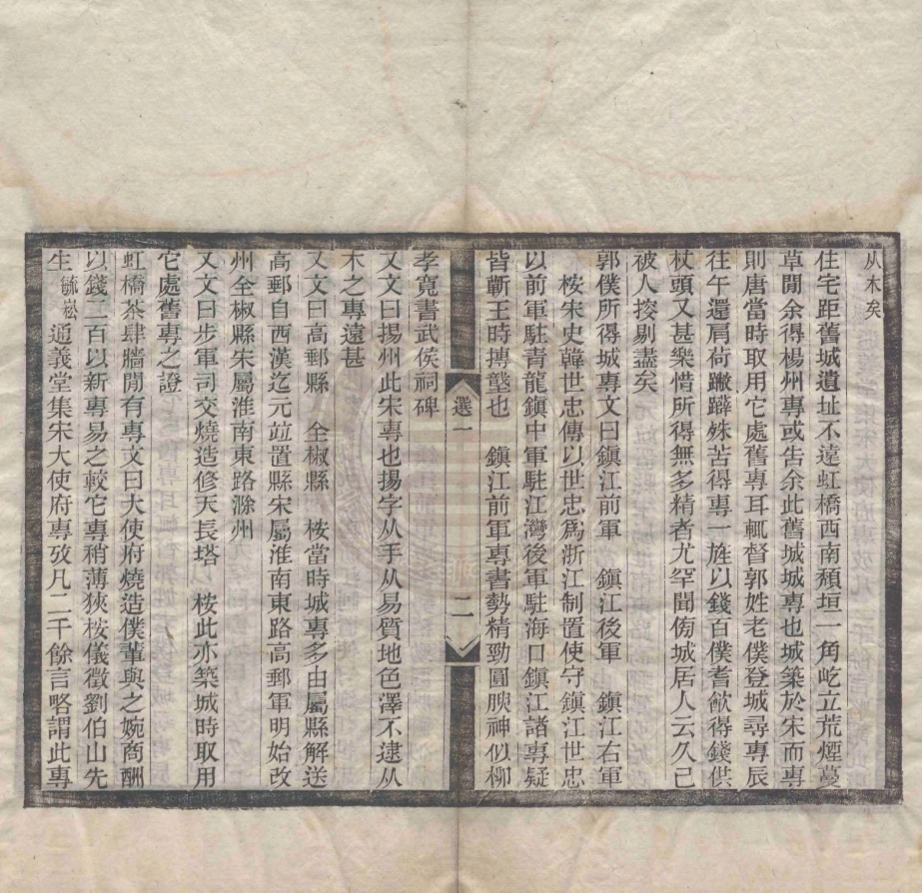 从木矣
住宅距舊城遺址不遠虹橋西南頹垣一角屹立荒煙蔓
草閒余得楊州專或告余此舊城城專也城築於宋而專
則唐當時取用它處舊專耳輒督郭姓老僕登城尋專辰
往午還肩荷蹩躠殊苦得專一旌以錢百僕耆歓得錢供
杖頭又甚樂惜所得無多精者尤罕聞傍城居人云久已
被人挍剔盡矣
郭僕所得城專文曰鎭江前軍　鎭江後軍　鎭江右軍
桉宋史韓世忠傳以世忠爲浙江制置使守鎭江世忠
以前軍駐青龍鎭中軍駐江灣後軍駐海口鎭江諸專疑
皆蘄王時摶戲也　鎭江前軍專書勢精勁圓腴神似柳
選一
二
孝寬書武侯祠碑
又文曰揚州此宋專也揚字从手从易質地色澤不逮从
木之專遠甚
又文曰高郵縣　全椒縣　桉當時城專多由屬縣解送
高郵自西漢迄元竝置縣宋屬淮南東路高郵軍明始改
州全椒縣宋屬淮南東路滁州
又文曰步軍司交燒造修天長塔　桉此亦築城時取用
它處舊專之證
虹橋茶肆牆閒有專文曰大使府燒造僕輩與之婉商酬
以錢二百以新專易之較它專稍薄狹桉儀徵劉伯山先
生毓崧通義堂集宋大使府專攷凡二千餘言略謂此專